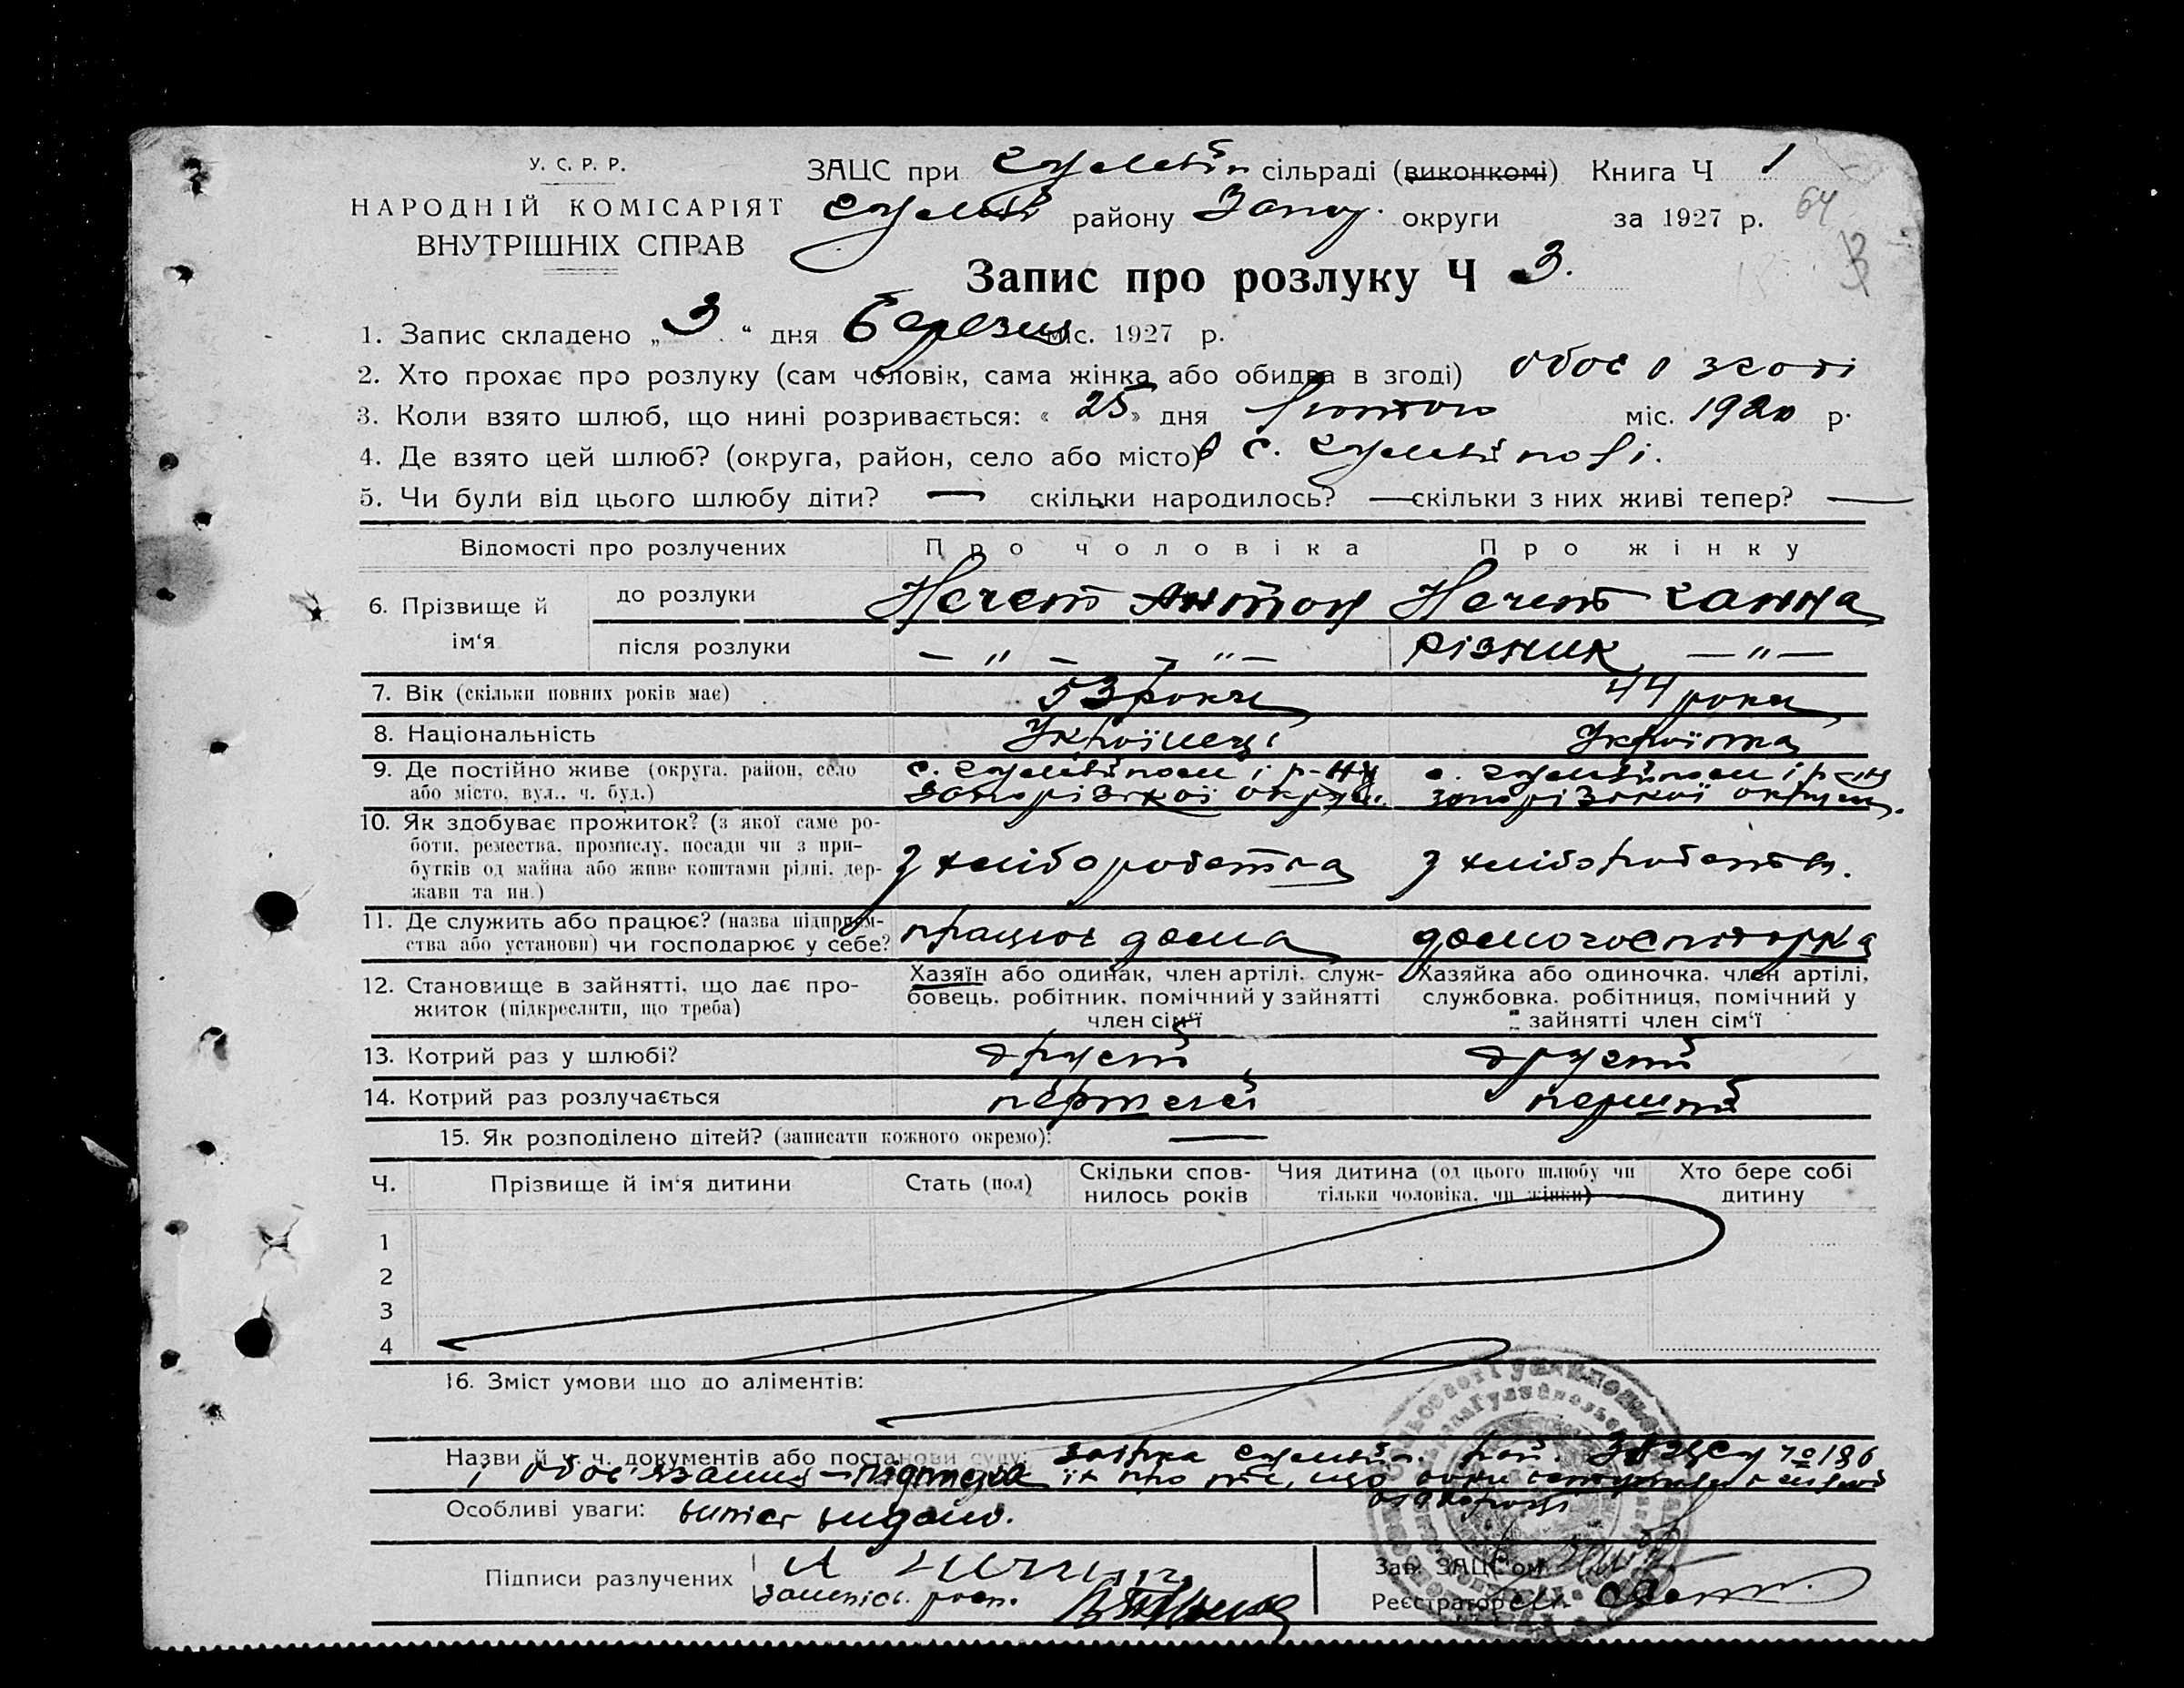 У. С. Р. Р.
НАРОДНІЙ КОМІСАРІЯТ
ВНУТРІШНІХ СПРАВ
ЗАЦС при Гуляйп сільраді (виконкомі) Книга Ч 1
Гуляйп району Запор. округи за 1927 р.
64
Запис про розлуку Ч 3.
1. Запис складено „ 3 “ дня Березня міс. 1927 р.
2. Хто прохає про розлуку (сам чоловік, сама жінка або обидва в згоді) обоє в згоді
3. Коли взято шлюб, що нині розривається: « 25 » дня Лютого міс. 1920 р.
4. Де взято цей шлюб? (округа, район, село або місто) в с. Гуляйполі.
5. Чи були від цього шлюбу діти? — скільки народилось? — скільки з них живі тепер? —
Відомості про розлучених Про чоловіка Про жінку
6. Прізвище й ім‘я
до розлуки Нечет Антон Нечет Ганна
після розлуки — „ — — „ — Різник — „ —
7. Вік (скільки повних років має) 53 роки 44 роки
8. Національність Українець Українка
9. Де постійно живе (округа, район, село
або місто, вул., ч. буд.)
с. Гуляйполе і р-ну
Запорізької округи.
с. Гуляйполе і р-ну
Запорізької округи.
10. Як здобуває прожиток? (з якої саме ро-
боти, ремества, промислу, посади чи з при-
бутків од майна або живе коштами рідні, дер-
жави та ин.)
З хліборобства З хліборобства.
11. Де служить або працює? (назва підприєм-
ства або установи) чи господарює у себе?
працює дома домогосподарка
12. Становище в зайнятті, що дає про-
житок (підкреслити, що треба)
Хазяїн або одинак, член артілі, служ-
бовець, робітник, помічний у зайнятті
член сім‘ї
Хазяйка або одиночка, член артілі,
службовка, робітниця, помічний у
зайнятті член сім‘ї
13. Котрий раз у шлюбі? другий другий
14. Котрий раз розлучається перший перший
15. Як розподілено дітей? (записати кожного окремо): —
Ч. Прізвище й ім‘я дитини Стать (пол) Скільки спов-
нилось років Чия дитина (од цього шлюбу чи
тільки чоловіка, чи жінки) Хто бере собі
дитину
1
2
3
4
16. Зміст умови що до аліментів:
Назви й ч. ч. документів або постанови суду: Заявка Гуляйп. рай. ЗАЦСу № 196
і обов'язання-підписка їх про те, що вони
Особливі уваги: витяг видано.
Підписи разлучених
Зав. ЗАЦС‘ом
Реєстратор